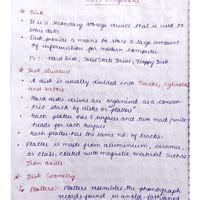 * Disk
→ It is a Secondary storage device that is used to store data
→ Disk provide a means to store a large amount of information for modern computer
Ex: Hard Disk, Solid State Drive, Floppy Disk
* Disk Structure
→ A disk is usually divided into Tracks, cylinders and sectors
→ Hard disks drives are organised as a concentric stack of disks or "platter"
→ Each platter has 2 surfaces and two read/write head for each surface
→ Each platter has the same no. of tracks.
→ Platter is made from aluminium, ceramic or class, coated with magnetic material such as Iron oxide.
* Disk Geometry
Platters: Platters resembles the phonograph records found in an old-fashioned